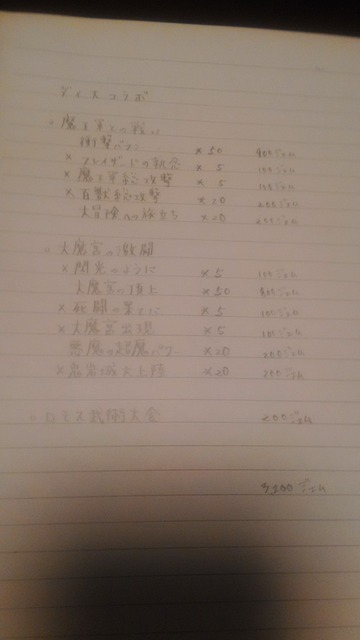 ダイ大コラボ
○魔王軍との戦い
衝撃バトン ×50 900ジェム
×フレイザードの執念 ×5 100ジェム
×魔王軍総攻撃 ×5 100ジェム
×百獣総攻撃 ×20 200ジェム
大冒険への旅立ち ×20 200ジェム
○大魔宮の激闘
×閃光のように ×5 100ジェム
大魔宮の頂上 ×50 900ジェム
×死闘の果てに ×5 100ジェム
×大魔宮出現 ×5 100ジェム
悪魔の超魔 ×20 200ジェム
×鬼岩城大上陸 ×20 200ジェム
○ロモス武術大会 200ジェム
3,200ジェム